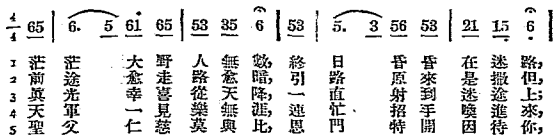 4/4 65 | 6. 5 61 65 | 53 35 6 | 53 | 5. 3 56 53 | 21 15 6 |
1 茫茫大野人無數, 終日昏昏在迷路,
2 前途愈走路愈暗, 引路原來是撒但;
3 眞光幸喜從天降, 一直射到迷途上;
4 天軍一見樂無涯, 連忙招手喚進來,
5 父仁慈莫與比, 恩門特開因待你,